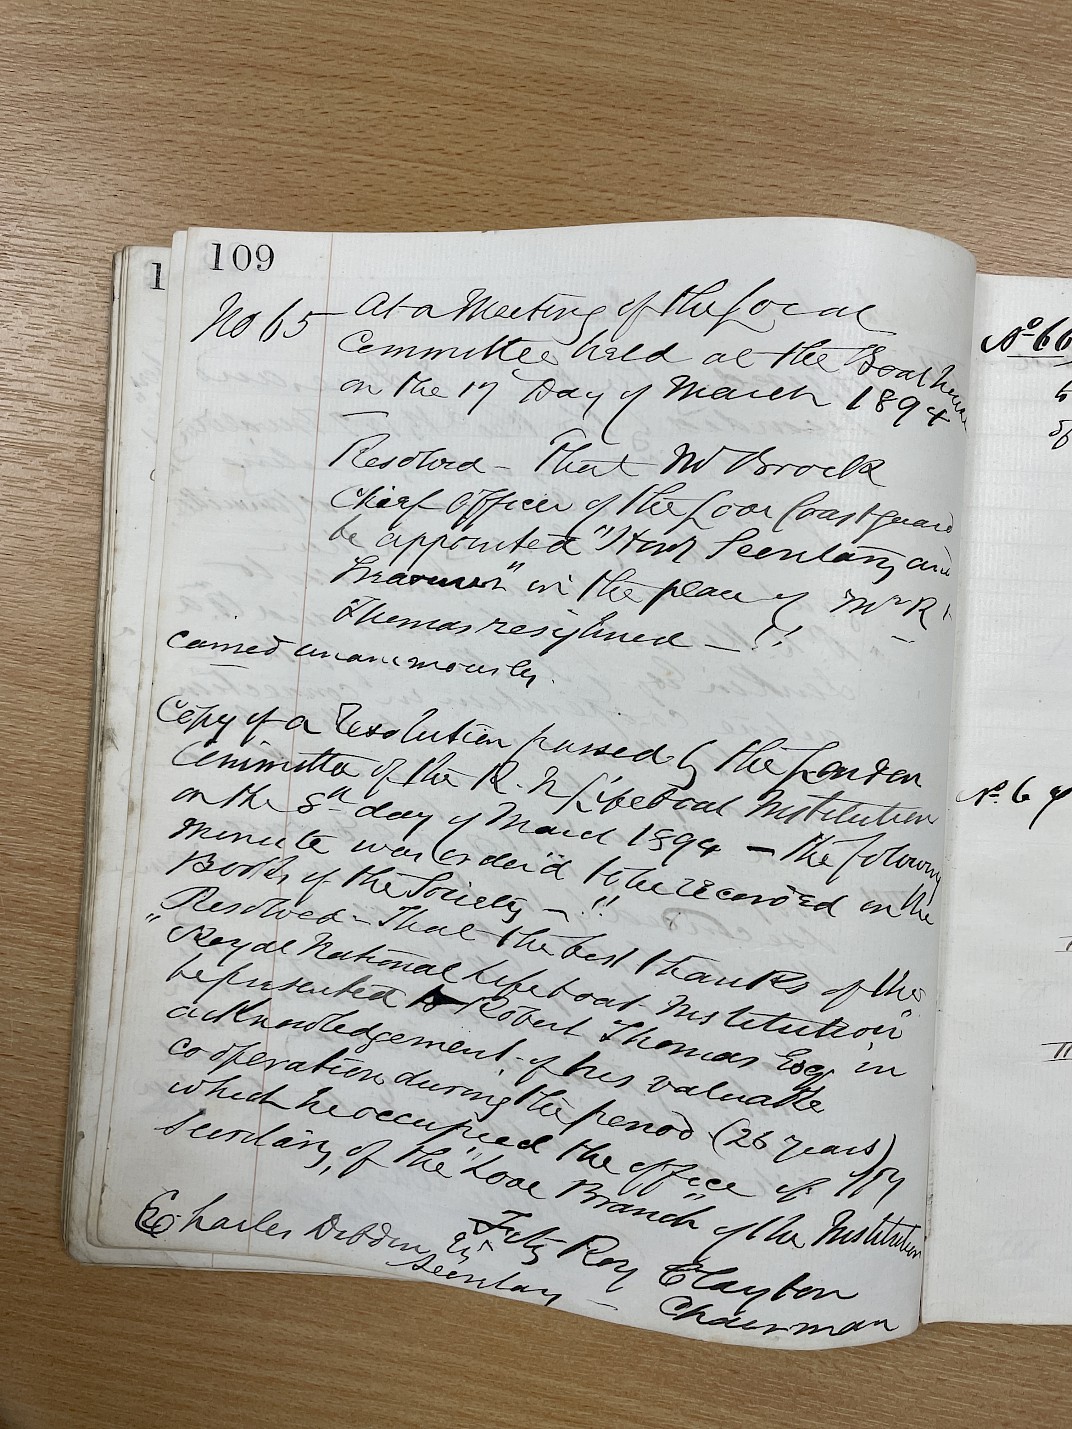 109
No 65 At a Meeting of the Local
Committee held at the Boat house
on the 17 Day of March 1894
Resolved - That Mr Brock
Chief Officer of the Looe Coastguard
be appointed "Hony Secretary and
Treasurer" in the place of Mr R
Thomas resighned - "
carried unanimously.
Copy of a Resolution passed by the London
Committee of the R. N Lifeboat Institution
on the 8th day of March 1894 - the folowing
minute was order'd to be recorded in the
Books of the Society - "
"Resolved - That the best thanks of the
Royal National Lifeboat Institution"
be presented to Robert Thomas Esq, in
acknowledgement, of his valuable
cooperation during the period (26 years)
which he occupied the office of Hy
Secretary, of the "Looe Branch" of the Institution
Charles Dibdin Fitz Roy Clayton
Secretary - Chairman
1
No 66
No. 67